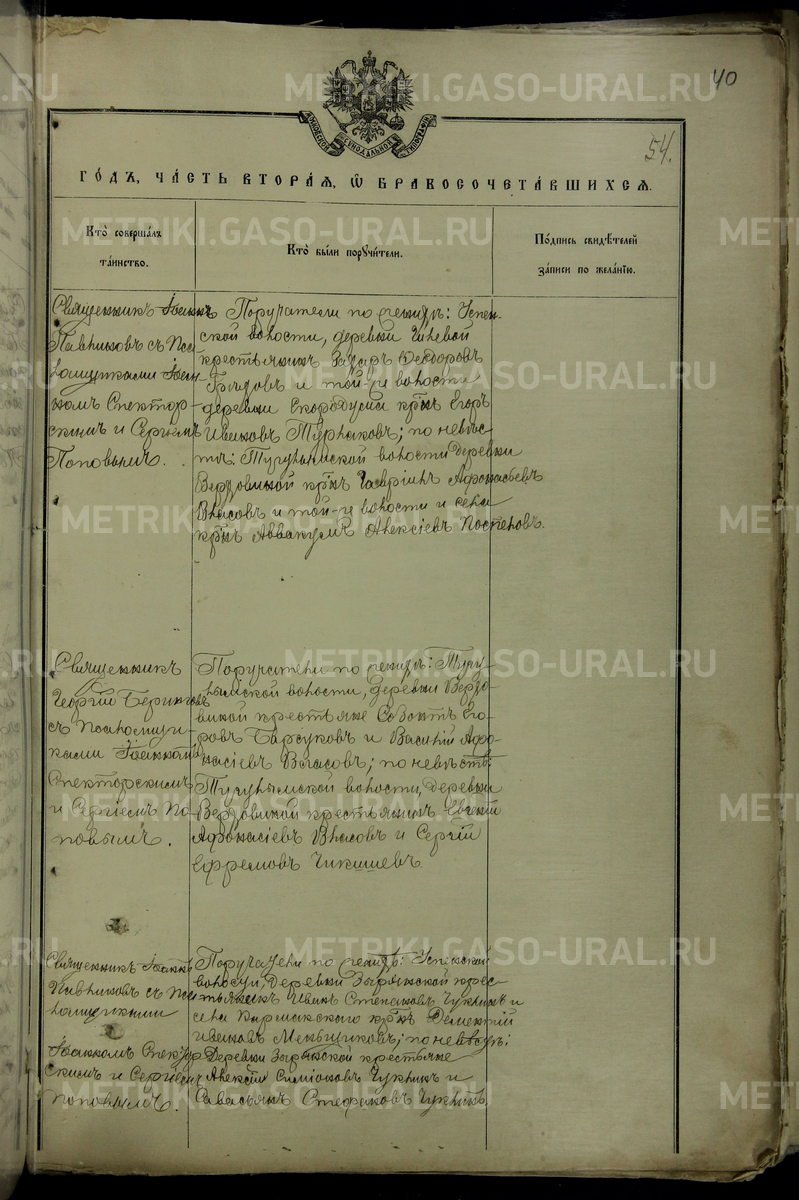 40
54.
ГО́ДЪ, ЧА́СТЬ ВТОРА́Я, Ѽ БРАКОСОЧЕТА́ВШИХСЯ.
Кто̀ соверша́лъ
та́инство.
Кто̀ бы́ли поручи́тели.
По́дпись свидѣ́телей
за́писи по жела́нїю.
Священникъ Іоаннъ
Павлиновъ съ Пса-
ломщиками Іоан-
номъ Спектор-
скимъ и Сергіемъ
Поповымъ.
Поручатели по женихѣ: Успен-
ской волости, деревни
крестьянинъ Ѳедоровъ
и той-же волости
деревни Скородума кр҃нъ Егоръ
Ивановъ Турнаковъ; по невѣс-
тѣ: Тугулымской волости деревни
Верховиной кр҃нъ Гавріилъ Афонасьевъ
Власовъ и той-же волости и села
кр҃нъ Аввакумъ Алексіевъ Поспеловъ.
Священникъ
Георгій
съ Псаломщи-
ками Іоанномъ
Спекторскимъ
и Сергіемъ По-
повымъ.
Поручатели по женихѣ: Тугу-
лымской волости, деревни Верхо-
виной крестьяне Его-
ровъ Барсуковъ и Василій Афо-
насіевъ Власовъ; по невѣстѣ:
Тугулымской волости, деревни
Верховиной крестьянинъ Евгеній
Афонасіевъ Власовъ и Сергій
Ефремовъ Чикишевъ.
Священникъ Іоаннъ
Павлиновъ съ Пса-
ломщиками
Іоанномъ Спектор-
скимъ и Сергіемъ
Поповымъ.
Поручатели по женихѣ: Успенской
волости, деревни Зырянской крес-
тьянинъ Иванъ Степановъ Чукинъ и
села кр҃нъ Дементій
Ивановъ Меньщиковъ; по невѣстѣ:
Деревни Зырянской крестьяне
Алексій Симіоновъ Чукинъ и
Савастьянъ Стефановъ Чукинъ.
METRIKI.GASO-URAL.RU